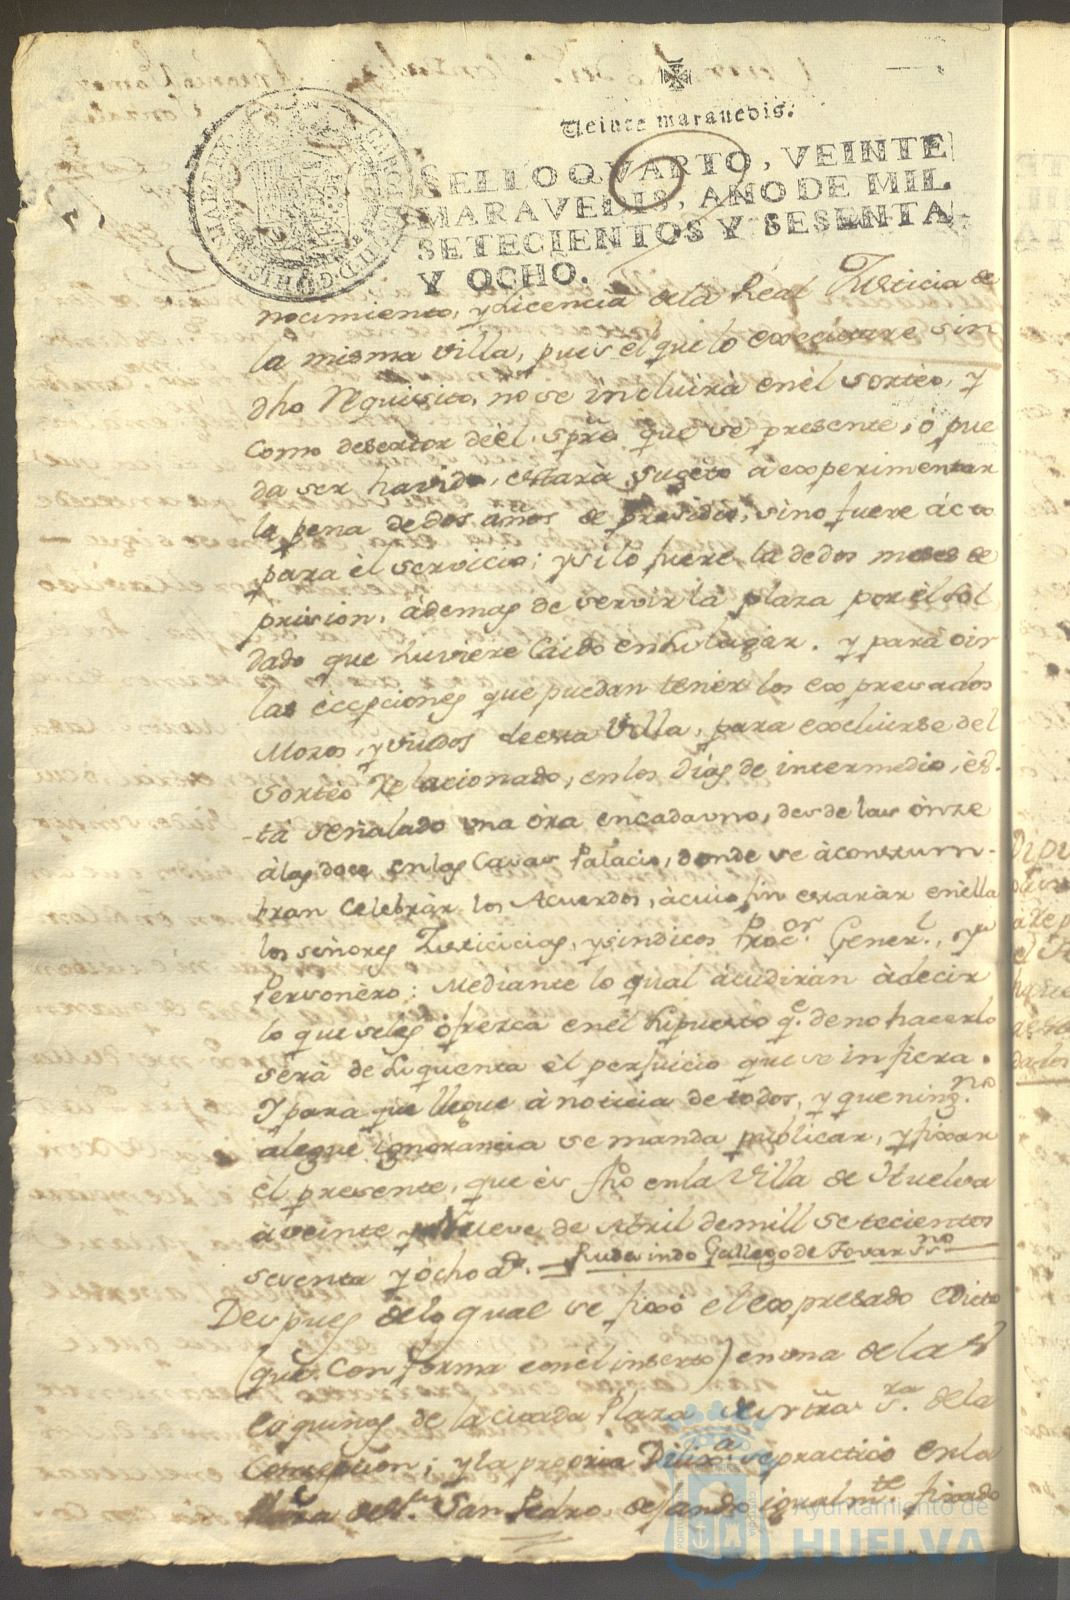 Veinte maravedis.
SELLO QVARTO, VEINTE
MARAVEDIS, AÑO DE MIL
SETECIENTOS Y SESENTA
Y OCHO.
nocimiento, y Licencia dela Real Justicia de
la misma villa, pues él que lo execcutare sin
dho Requisito, no se incluirà en él sorteo, y
como desertor dèel, spre. que se presente, ó pue
da ser havido, estarà sugeto à experimentar
la pena de dos años de Presidio, sino fuere ácto
para él servicio; y si lo fuere la de dos meses de
prision, àdemas de servir là plaza por él sol
dado que huviere Caido en su lugar. y parà oir
las ecepciones que puedan tener los expresados
Mozos, y viudos de esta Villa, para excluirse del
Sorteo Relacionado, en los Dias de intermedio, és-
-tà señalado una óra en cada uno, desde las ónze
à las doce en las Casas Palacio, donde se àcostum-
bran celebràr los Acuerdos, à cuio fin estaràn en élla
los señores Justicias, y sindicos Procor. Generl., y
Personèro: Mediante lo qual àcudiràn à decir
lo que seles ófrezca en él supuesto qe. de no hacerlo
serà de su quenta él perjuicio que se infiera.
Y para que llegue à noticia de todos, y que ningno.
alegue ignorancia se manda publicar, y fixar
él presente, que és fho en la Villa de Huelva
à veinte y Nueve de Abril de mill setecientos
sesenta y ócho as. = Rudesindo Gallego de Tovar Sno.
Despues delo qual se fixó el expresado edicto
(que conforma con él inserto) en una de las
esquinas de la citada Plaza de ntra. sra. dela
Concepcion; y la propria Diliga. se practicó en la
Plaza de Sr. San Pedro, dejando igualmte. fixado
Ayuntamiento de
HUELVA